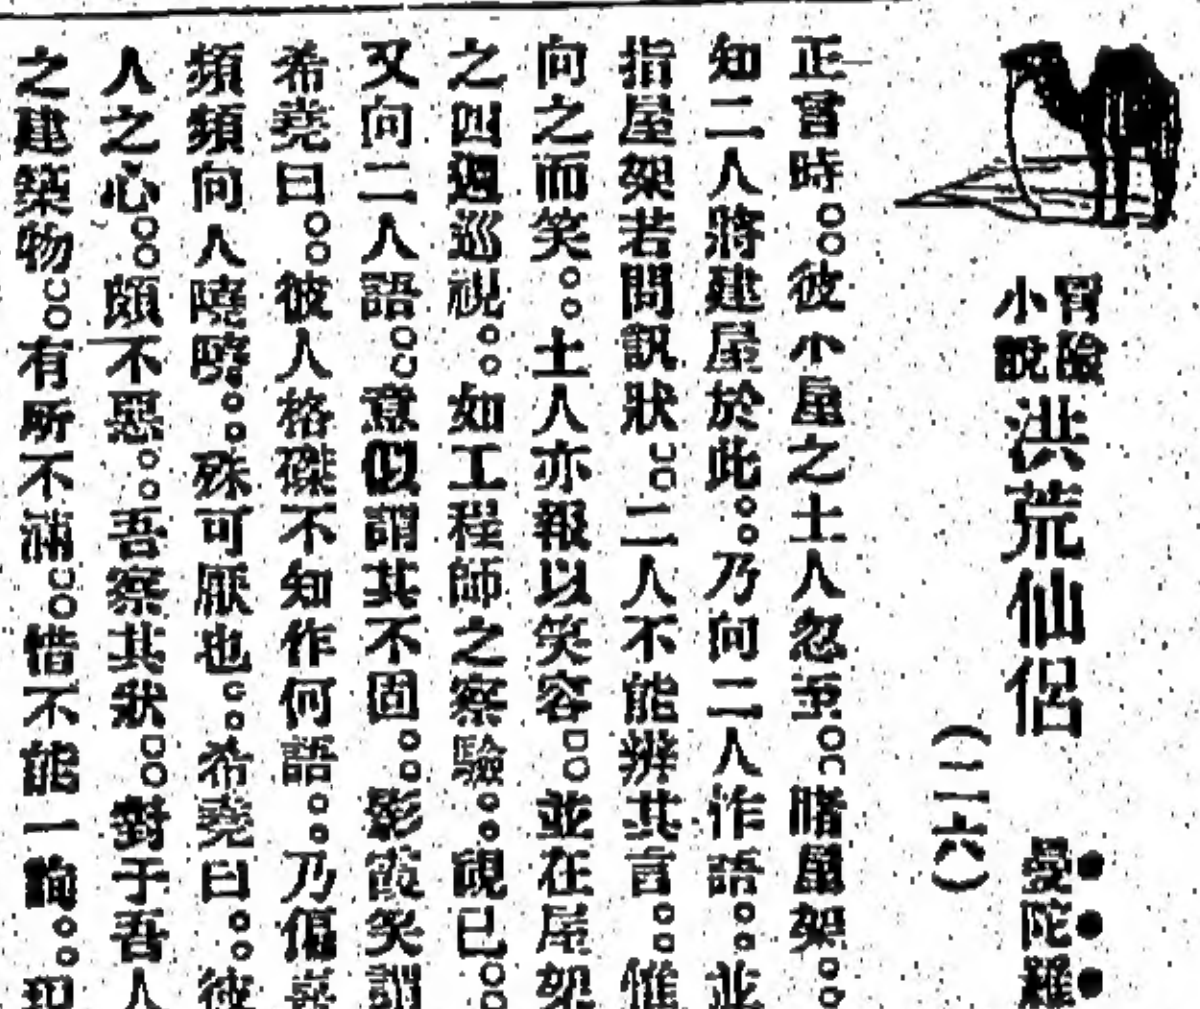 小說
洪荒仙侶
(二六)
曼陀羅
正言時。。彼小屋之土人忽至。。睹屋架。。
知二人將建屋於此。。乃向二人作語。。並
指屋架若問訊狀。。二人不能辨其言。。惟
向之而笑。。土人亦報以笑容。。並在屋架
之四週巡視。。如工程師之察驗。。視已。。
又向二人語。。意似謂其不固。。影霞笑謂
希堯曰。。彼人格磔不知作何語。。乃傴
頻頻向人嘵嘵。。殊可厭也。。希堯曰。。彼
人之心。。頗不惡。。吾察其狀。。對于吾人
之建築物。。有所不滿。。惜不能一詢。。